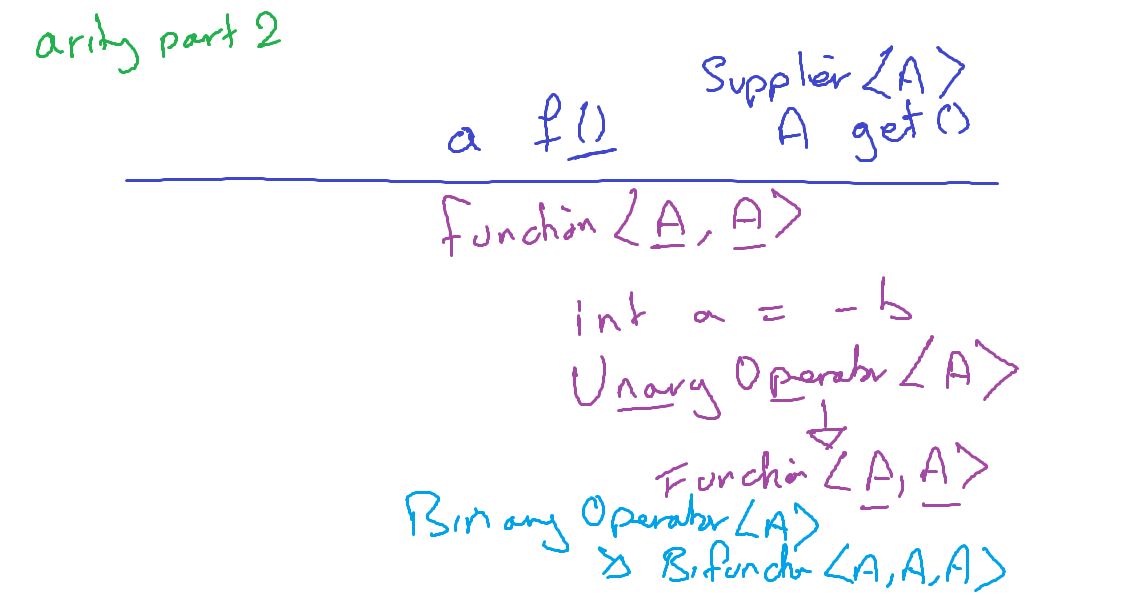 arity part 2
Supplier <A>
a f() A get()
Function <A, A>
int a = - b
Unary Operator <A>
Function <A, A>
Binary Operator <A>
Bifunction <A, A, A>